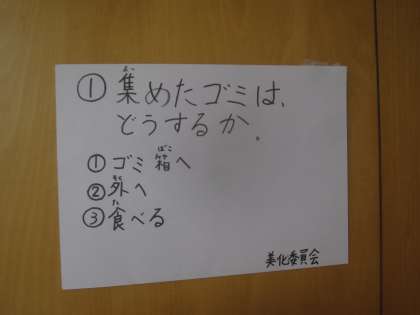 ① 集めたゴミは、
どうするか。
① ゴミ箱へ
② 外へ
③ 食べる
美化委員会